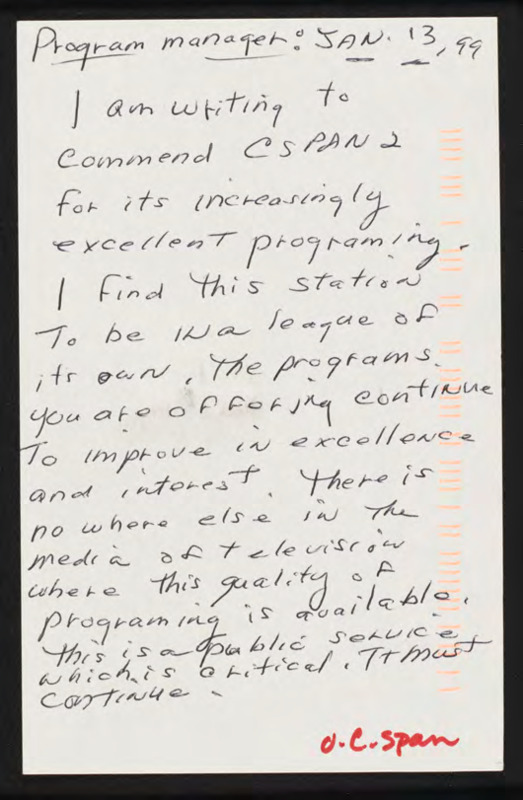 Program manager: JAN. 13, 99
I am writing to
commend CSPAN 2
for its increasingly
excellent programing.
I find this station
To be in a league of
its own. The programs
you are offering continue
To improve in excellence
and interest. There is
no where else in the
media of television
where this quality of
programing is available.
This is a public service
which is critical. It must
continue.
o.C.Span